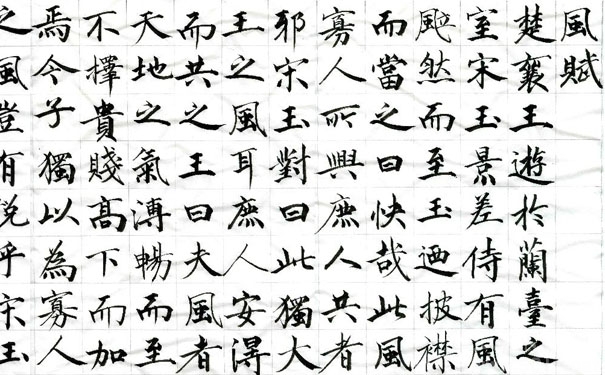 風賦
楚襄王遊於蘭臺之
室宋玉景差侍有風
颯然而至玉迺披襟
而當之曰快哉此風
寡人所與庶人共者
邪宋玉對曰此獨大
王之風耳庶人安淂
而共之王曰夫風者
天地之氣溥暢而至
不擇貴賤高下而加
焉今子獨以為寡人
之風豈有說乎宋玉